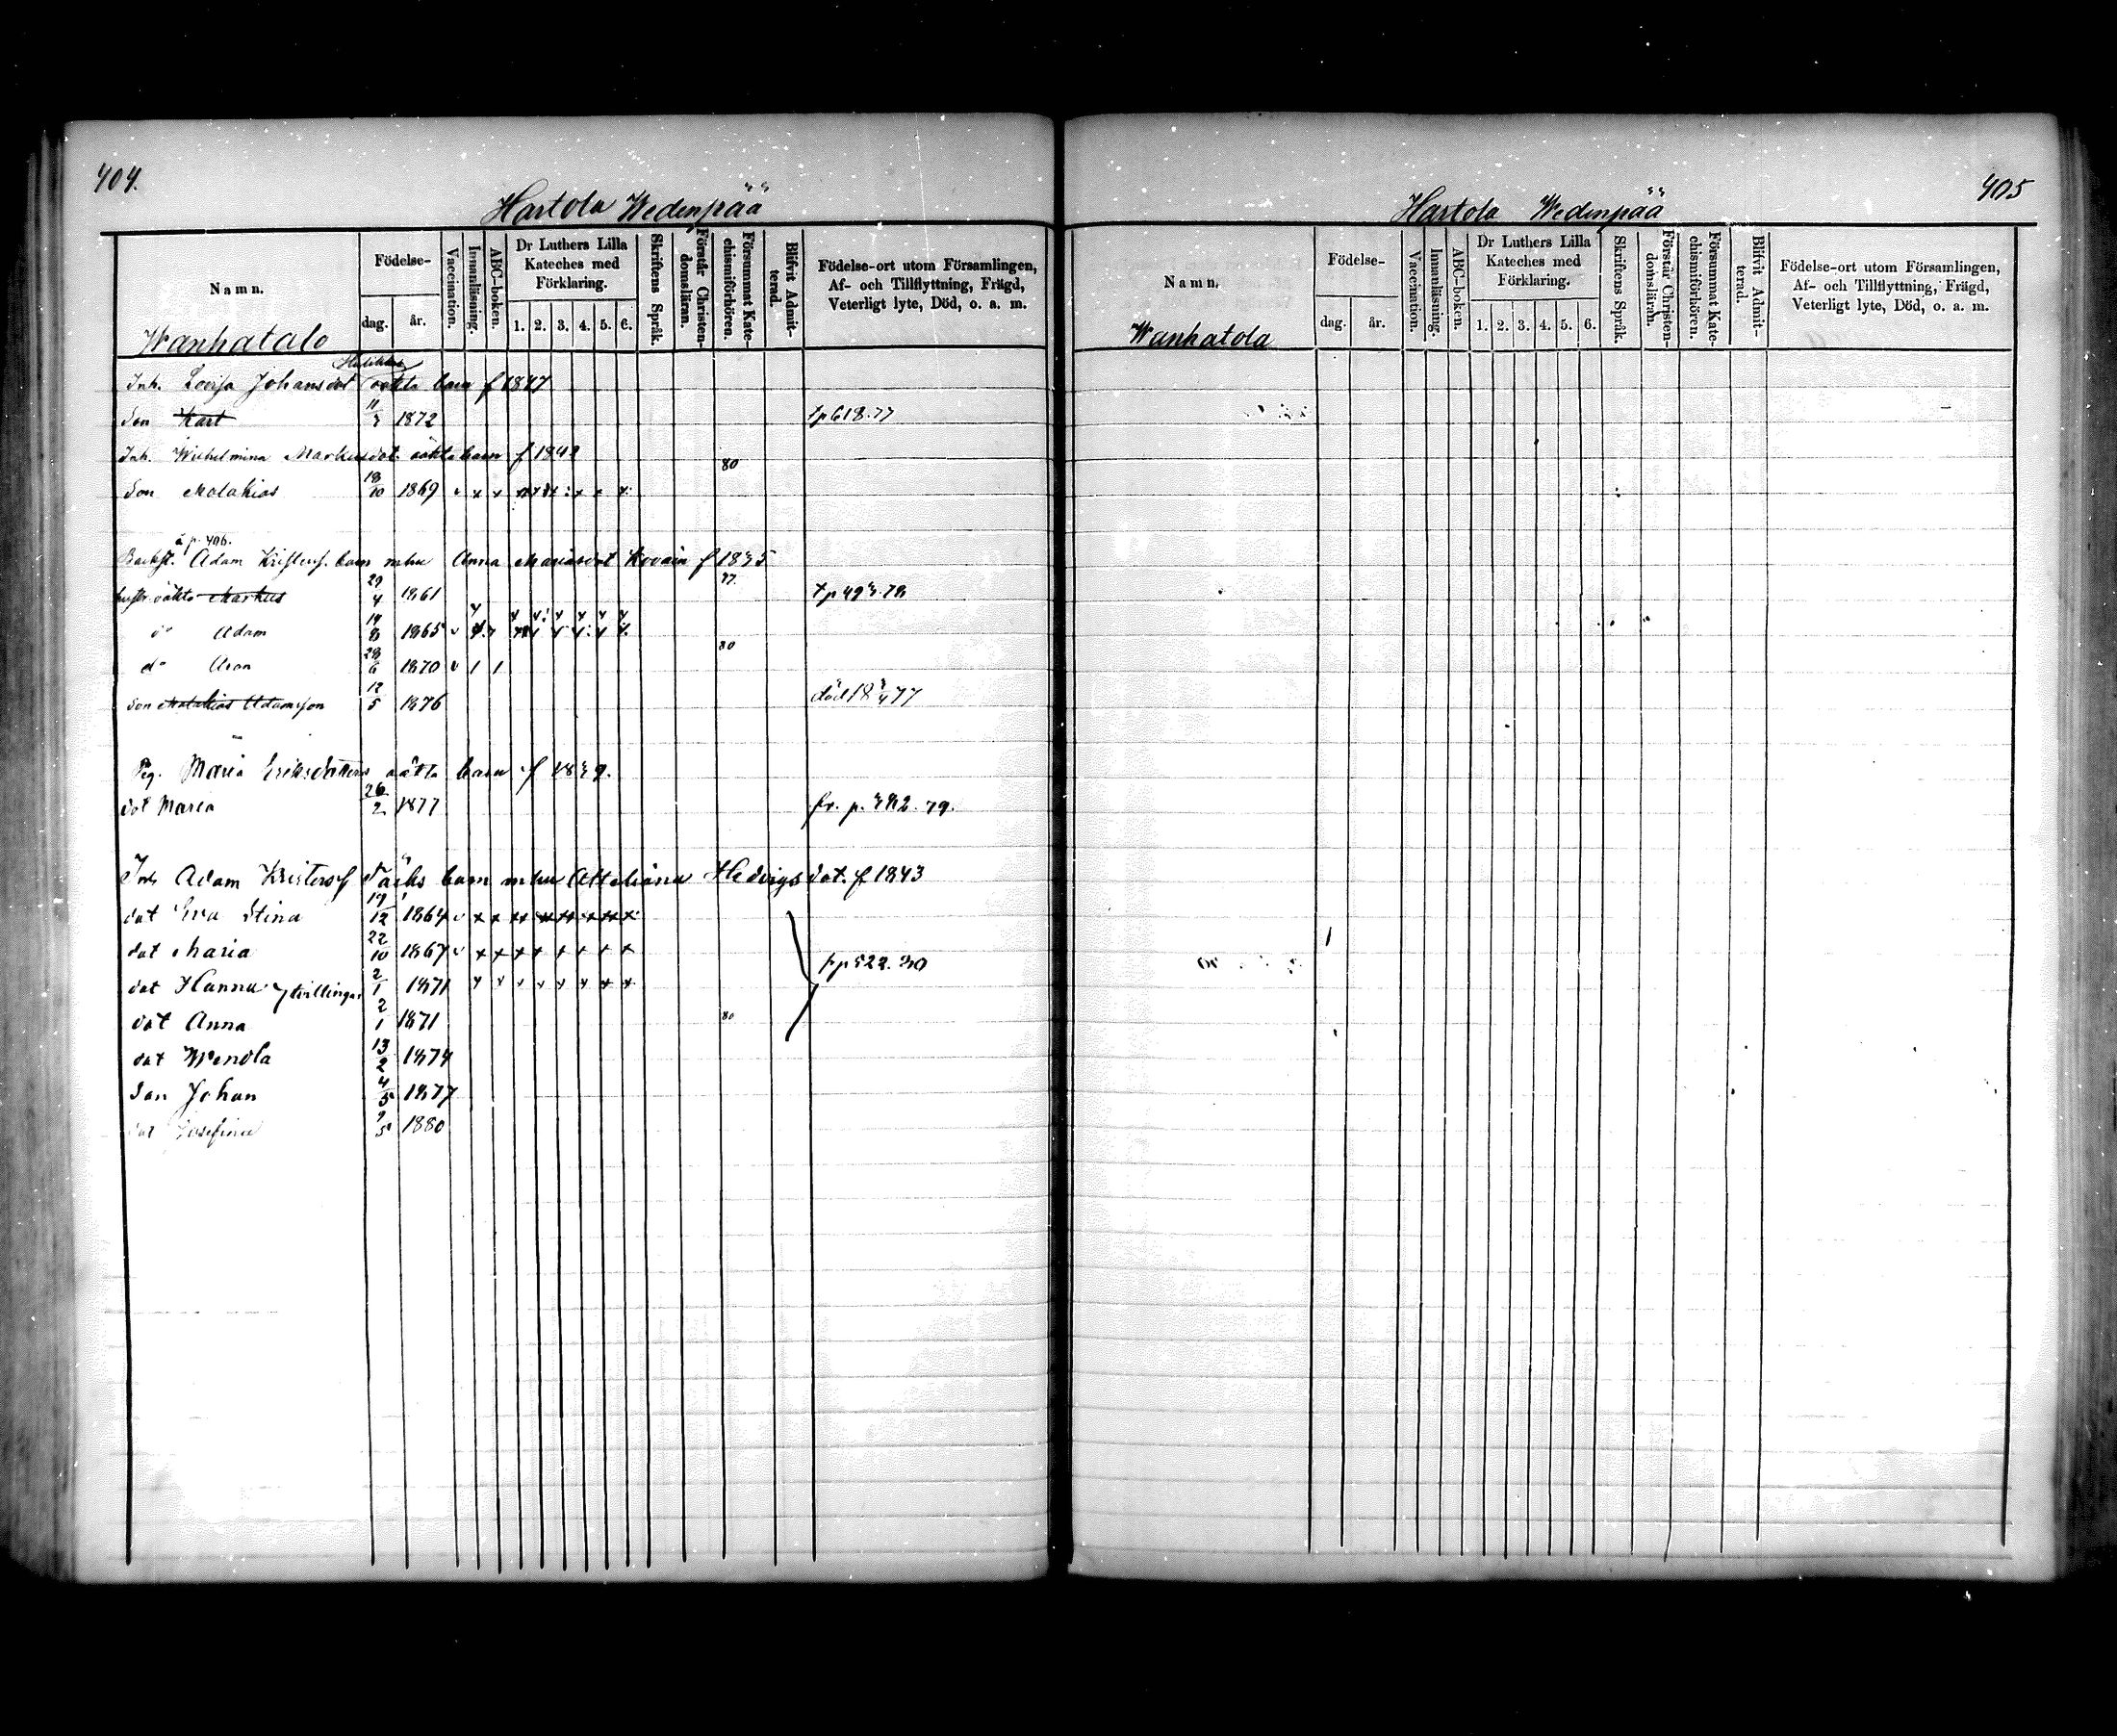 404.
Hartola Wedenpää
Namn.
Födelse-
dag. år.
Vaccination.
Innanläsning.
ABC-boken.
Dr Luthers Lilla Kateches med Förklaring.
1. 2. 3. 4. 5. 6.
Skriftens Språk.
Förstår Christendomsläran.
Försummat Katechismiförhören.
Blifvit Admitterad.
Födelse-ort utom Församlingen, Af- och Tillflyttning, Frägd, Veterligt lyte, Död, o. a. m.
Wanhatalo
Inh. Lovisa Johansdot oäkta barn f 1847
Son Karl 11/3 1872 tp 618.77
Inh. Wilhelmina Markusdot. oäkta barn f 1842
80
Son Malakias 18/10 1869
å p. 406.
Backst. Adam Kristers. barn m hu Anna Mariasdot f 1835
77.
oäkta Markus 29/4 1861 tp 493.78
do Adam 14/8 1865
80
do Aron 28/6 1870
Son Malakias Adamsson 12/5 1876 död 18 3/4 77
Pig. Maria Eriksdotters oäkta barn f 1839.
dot Maria 26/2 1877 fr. p. 382.79.
Inh Adam Kristers barn m hu Hedvigsdot. f 1843
dot Eva Stina 19/12 1864
dot Maria 22/10 1867
tp 522.80
dot Hanna tvillingar 2/1 1871
dot Anna 2/1 1871 80
dot Wendla 13/2 1874
Son Johan 4/5 1877
dot Josefina 9/5 1880
405
Hartola Wedenpää
Namn.
Födelse-
dag. år.
Vaccination.
Innanläsning.
ABC-boken.
Dr Luthers Lilla Kateches med Förklaring.
1. 2. 3. 4. 5. 6.
Skriftens Språk.
Förstår Christendomsläran.
Försummat Katechismiförhören.
Blifvit Admitterad.
Födelse-ort utom Församlingen, Af- och Tillflyttning, Frägd, Veterligt lyte, Död, o. a. m.
Wanhatola